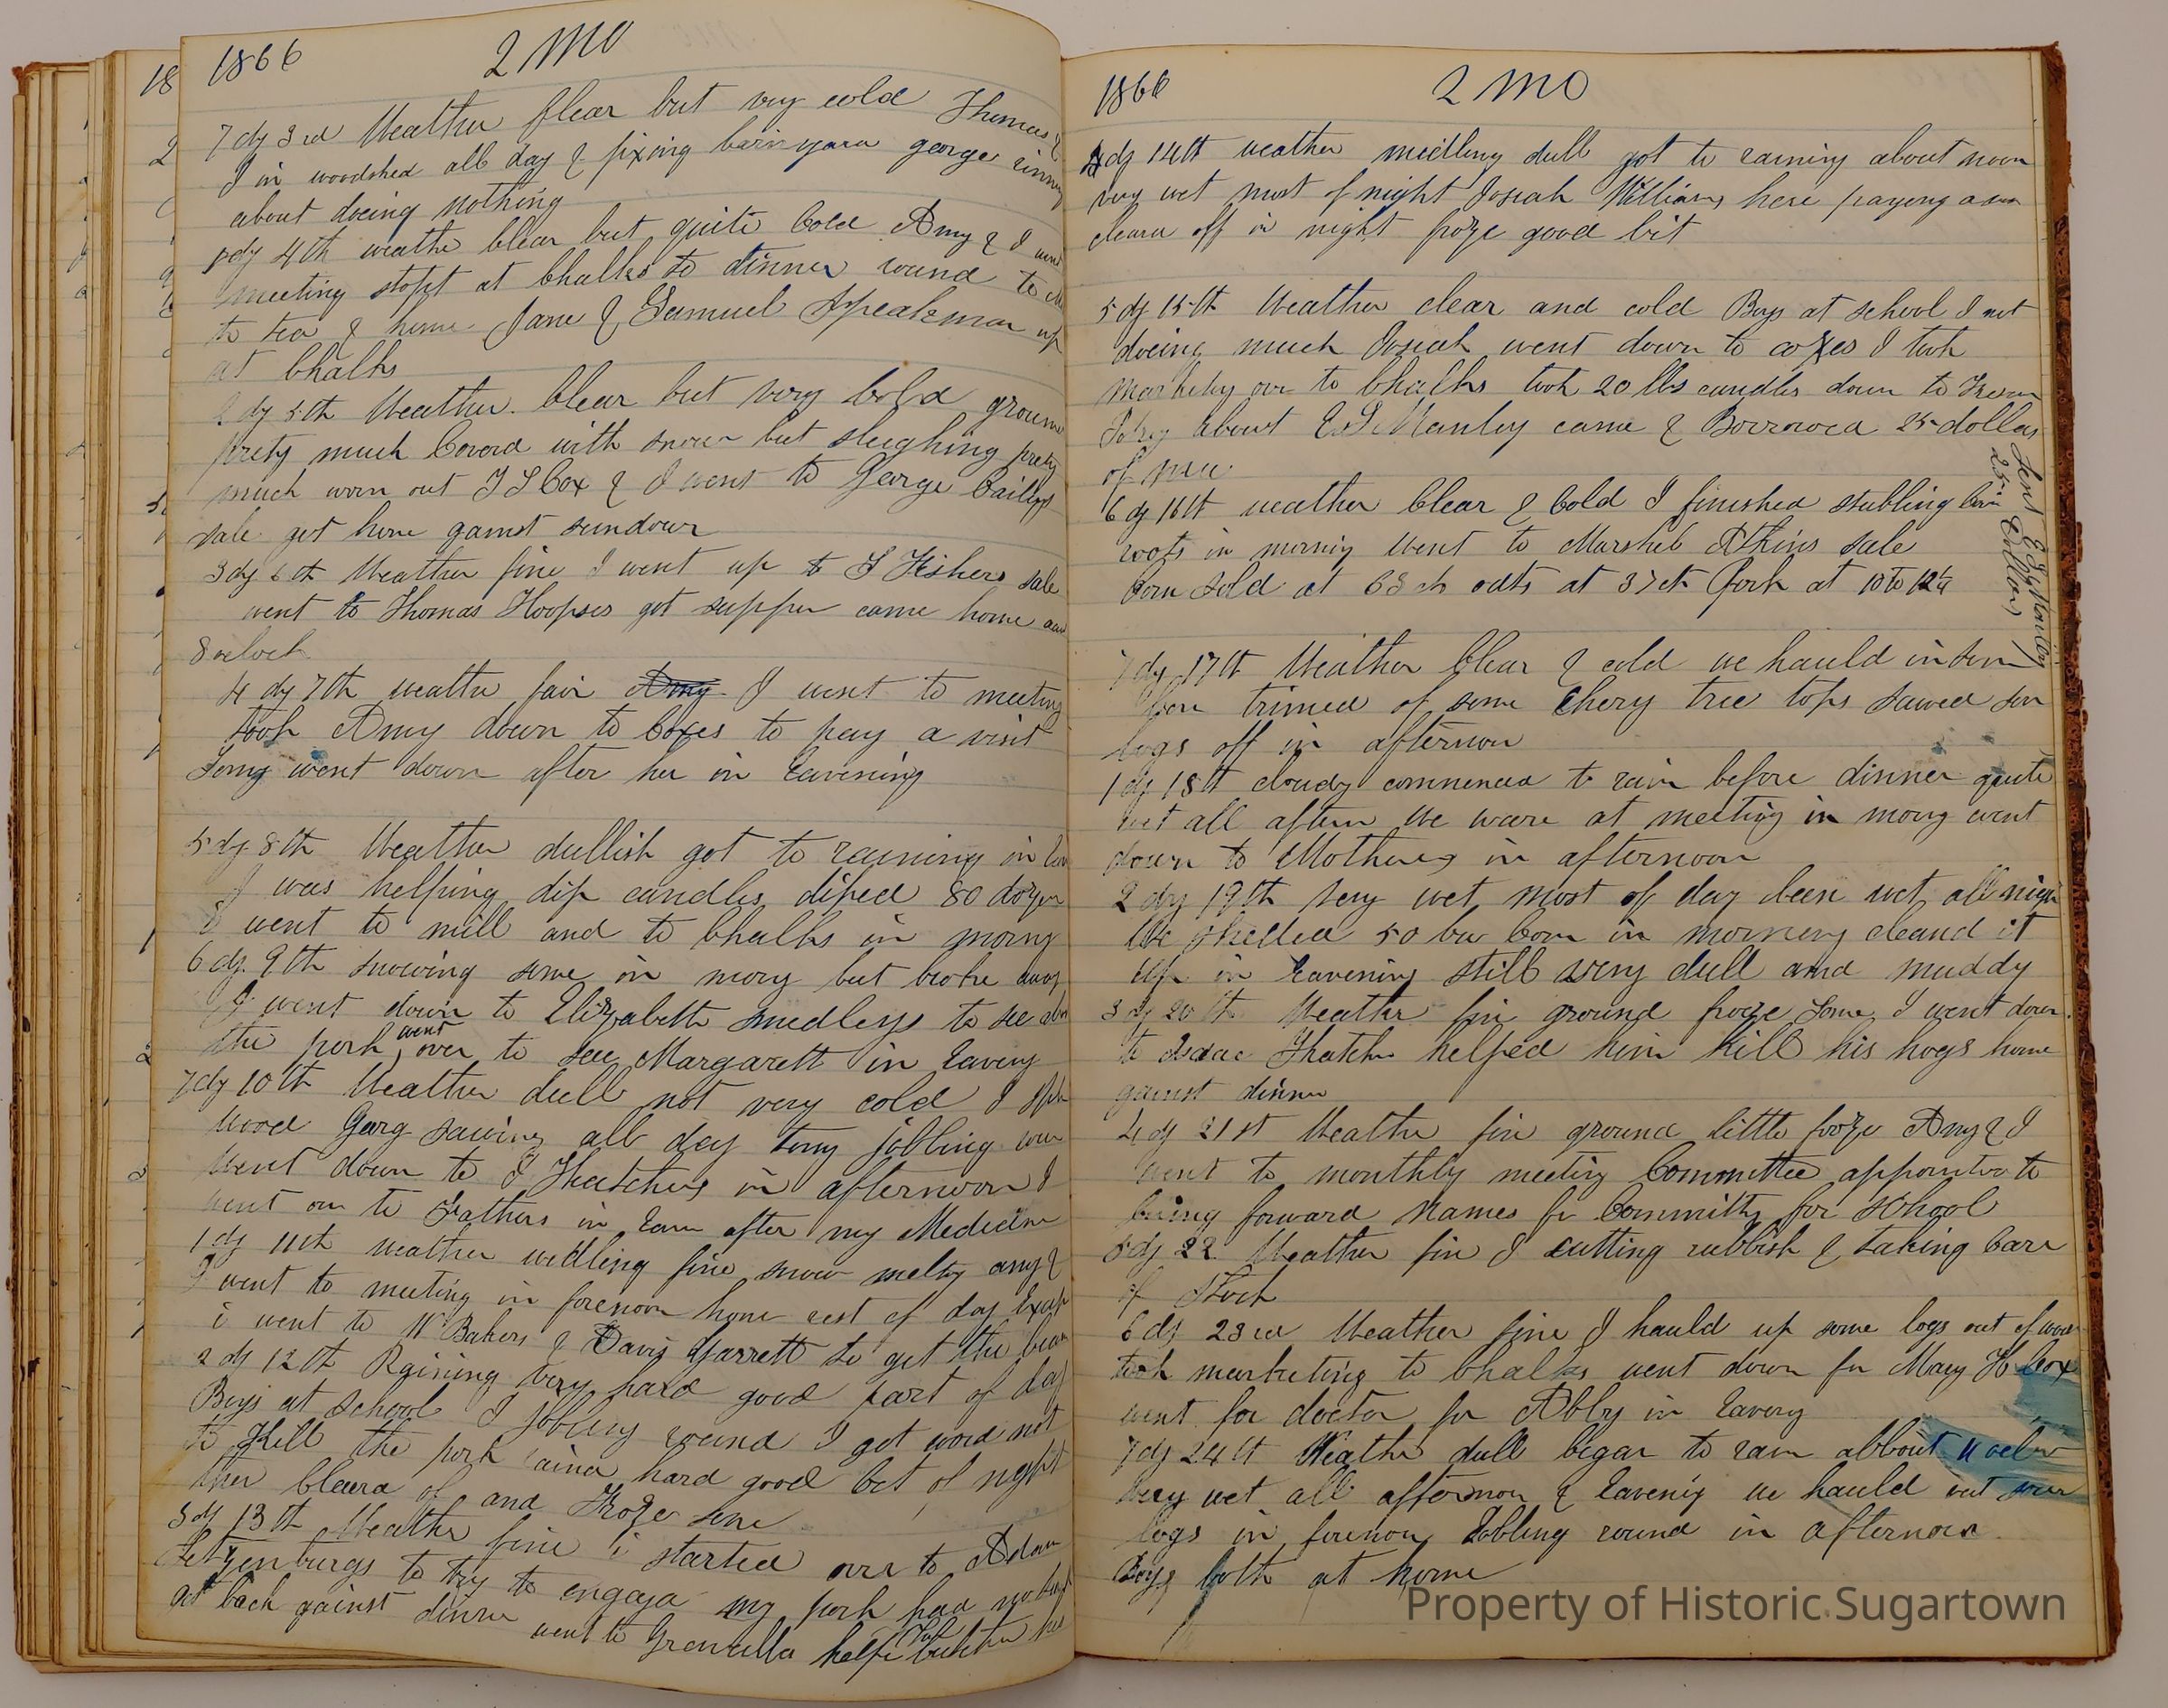 1866 2 mo
7 dy 3rd Weather Clear but very cold Thomas &
I in woodshed all day & fixing barnyara george
about doeing nothing
1 dy 4th weathe Clear but quite Cold Amy & I went
meeting stopt at Chalks to dinner round to
to tea & home Jane & Samuel Speakman up
at Chalks
2 dy 5th Weather Clear but very Cold ground
prety much Coverd with snow but sleighing prety
much worn out T S Cox & I went to George Baileys
sale got home gainst sundown
3 dy 6th Weather fine I went up to S Fishers sale
went to Thomas Hoopses got supper came home
8 oclock
4 dy 7th weather fair Amy I went to meeting
took Amy down to Coxes to pay a visit
Tomy went down after her in Eavening
5 dy 8th Weather dullish got to raining in
I was helping dip candles diped 80 dozen
i went to mill and to Chalks in morng
6 dy 9th snowing some in morng but broke away
I went down to Elizabeth Smedleys to see
the pork went over to see Margarett in Eaveng
7 dy 10th Weather dull not very cold I
wood Georg sawing all day Tomy jobling
went down to I Thatchers in afternoon I
went over to Fathers in Eavn after my Medicine
1 dy 11th weather midling fine snow melty amy &
I went to meeting in forenoon home rest of day Except
i went to W Bakers & Davis Garrett to get the
2 dy 12th Raining very hard good part of day
Boys at school I jobling round I got word not
to Kill the pork raind hard good bit of night
then Cleard of and Froze some
3 dy 13th Weather fine i started over to Adam
to try to engage my pork had
got back gainst dinner went to Granvilla help butcher
1866 2 mo
4 dy 14th weather midling dull got to raining about noon
very wet most of night Josiah Williams here paying
cleard off in night froze good bit
5 dy 15th Weather clear and cold Boys at school I not
doeing much Josiah went down to coxes I took
marketing over to Chalks took 20 lbs candles down to
about E G Manley came & Borrowed 25 dollars
of me
6 dy 16th weather Clear & Cold I finished stubling
roots in morning Went to Marshel Atkins sale
Corn Sold at 63 ct oats at 37 ct Pork at 10 to 12¼
Lent E G Manley
25 dollars
7 dy 17th Weather Clear & cold we hauld in som
trimed of some Chery tree tops sawed som
logs off in afternoon
1 dy 18th cloudy commenced to rain before dinner quite
wet all aftern We ware at meeting in morng went
down to Mothers in afternoon
2 dy 19th very wet most of day been wet all night
We shelled 50 bu Corn in morning cleand it
up in Eavening still very dull and muddy
3 dy 20th Weather fin ground froze some I went down
to Isaac Thatcher helped him Kill his hogs home
gainst dinner
4 dy 21st Weather fin ground little froze Amy & I
went to monthly meeting Committee appointed to
bring forward Names for Committy for School
5 dy 22 Weather fin I cutting rubbish & taking Care
of Stock
6 dy 23rd Weather fine I hauld up some logs out of woods
took marketing to Chalks went down for Mary H Cox
went for doctor for Abby in Eaveng
7 dy 24th Weather dull began to rain abbout 11 oclo
very wet all afternoon & Eavenig we hauld out
logs in forenon Jobling round in afternoon
Boys both at home
Property of Historic Sugartown